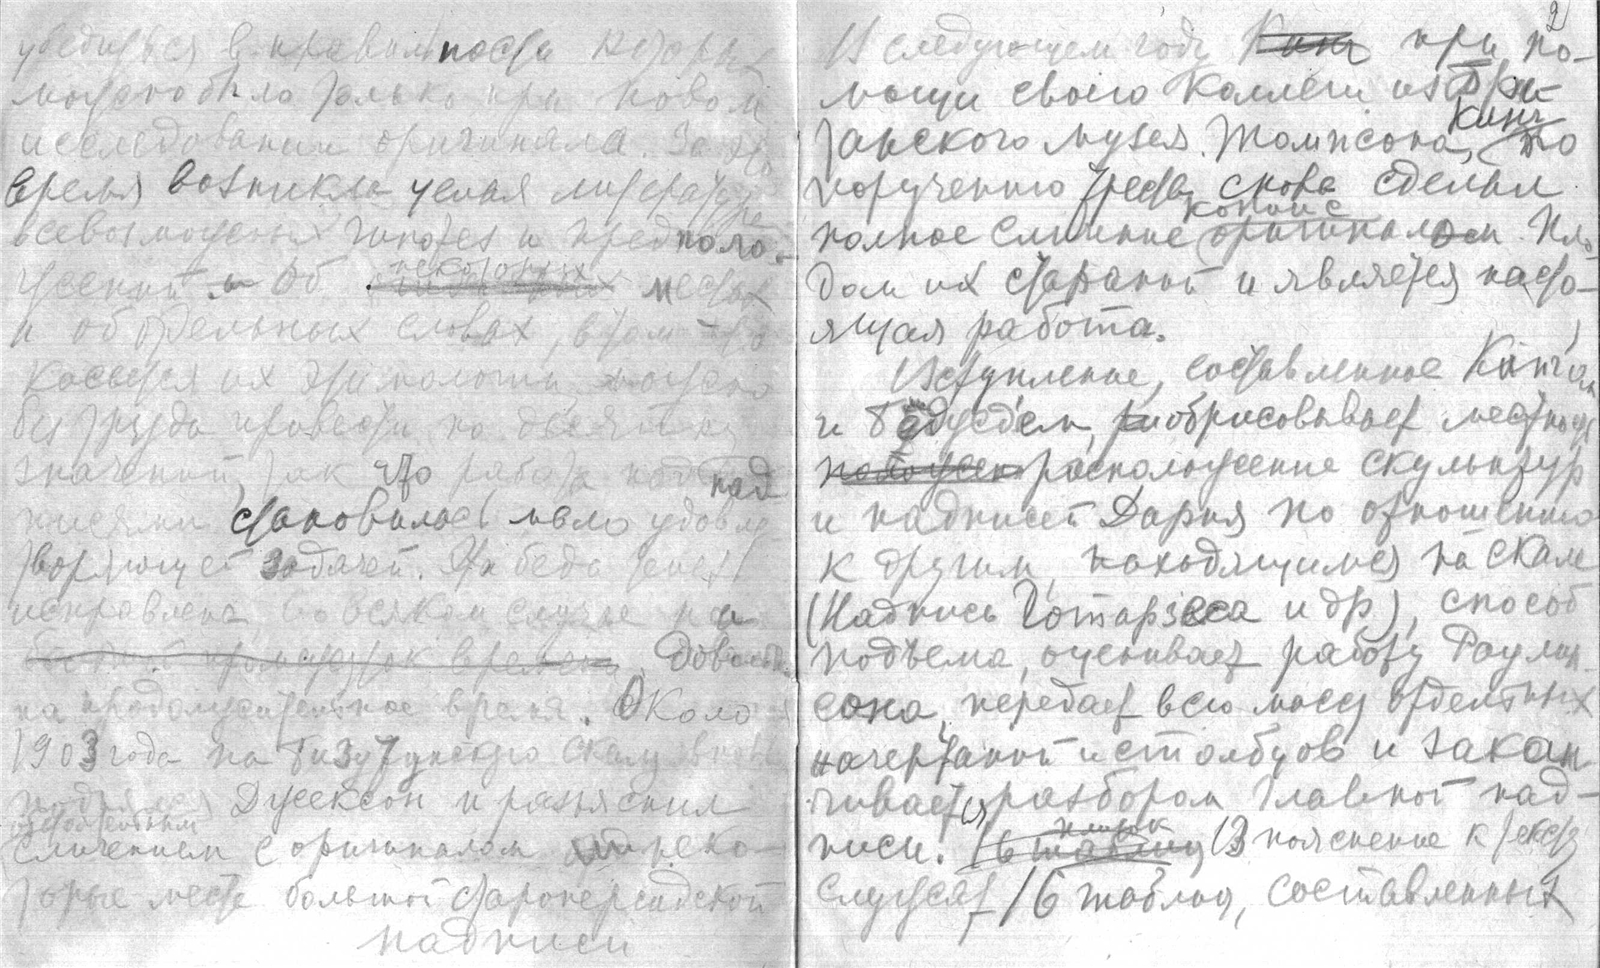 убедиться в правильности которых
можно было только при новом
исследовании оригинала. За это
время возникла целая литература
всевозможных гипотез и предполо-
жений об некоторых местах
и об отдельных словах, в том что
касается их этимологии, можно
без труда привести по десятку
значений, так что работа над над
писями становилась мало удовле
творяющей задачей. Эта беда теперь
исправлена, во всяком случае на
довольно
на продолжительное время. Около
1903 года на Бизутунскую скалу вновь
поднялся Джексон и разъяснил
тщательным
сличением с оригиналом неко-
торые места большой староперсидской
надписи
2
В следующем году Кинг при по-
мощи своего коллеги из Бри-
танского музея Томпсона, Кинг по
поручению треста снова сделал
полное слияние копии с оригиналом. Пло-
дом их стараний и является насто-
ящая работа.
Вступление, составленное Кингом
и Бэджем, обрисовывает местность
положен расположение скульптур
и надписей Дария по отношению
к другим, находящимся на скале
(Надпись Готарзеса и др.), способ
подъема, оценивает работу Раулин-
сона, передает всю массу отдельных
начертаний и столбцов и закан
чивается разбором главной над-
писи. В пояснение к тексту
служат 16 таблиц, составленных